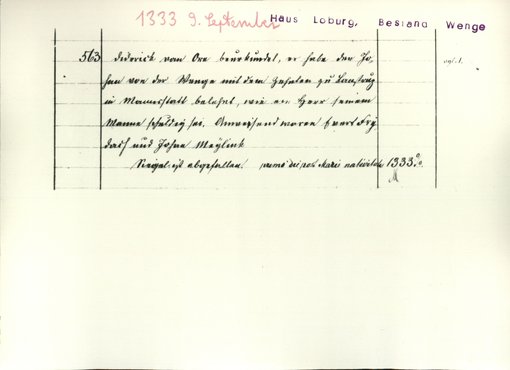 1333 9. September Haus Loburg, Bestand Wenge
563 Diderick van Ore beurkundet, er habe den Jo-
han von der Wenge mit dem Zehnten zu
in Mannstatt belehnt, wie ein Herr seinem
Manne schuldig sei. Anwesend waren Evert
und Johan Meylink
Siegel ist abgefallen. 1333.